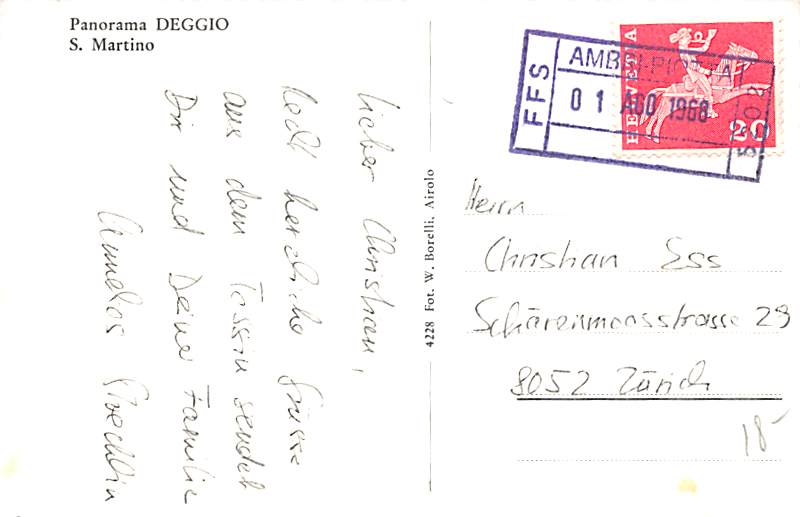 Panorama DEGGIO
S. Martino
Lieber Christian,
Recht herzliche Grüsse
aus dem Tessin sendet
Dir und Deiner Familie
4228 Fot. W. Borelli, Airolo
HELVETIA
20
FFS
AMBRI-PIOTTA
01 AGO 1968
Herrn
Christian Ess
Schärenmoosstrasse 29
8052 Zürich
18